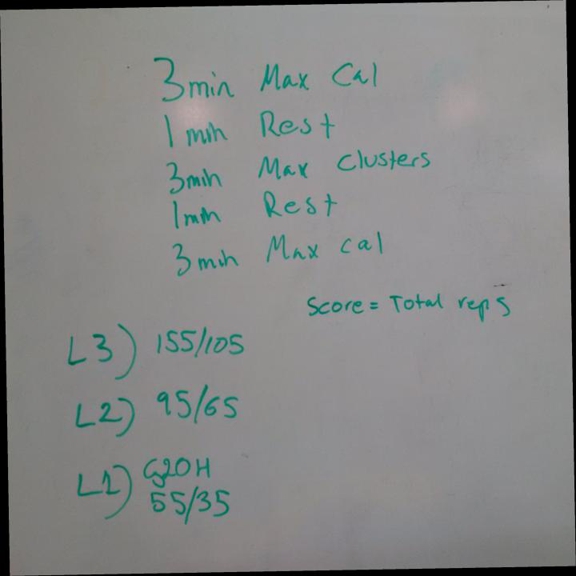 3min Max Cal
1 min Rest
3min Max Clusters
1min Rest
3 min Max cal
Score = Total reps
L3) 155/105
L2) 95/65
L1) G2OH
55/35